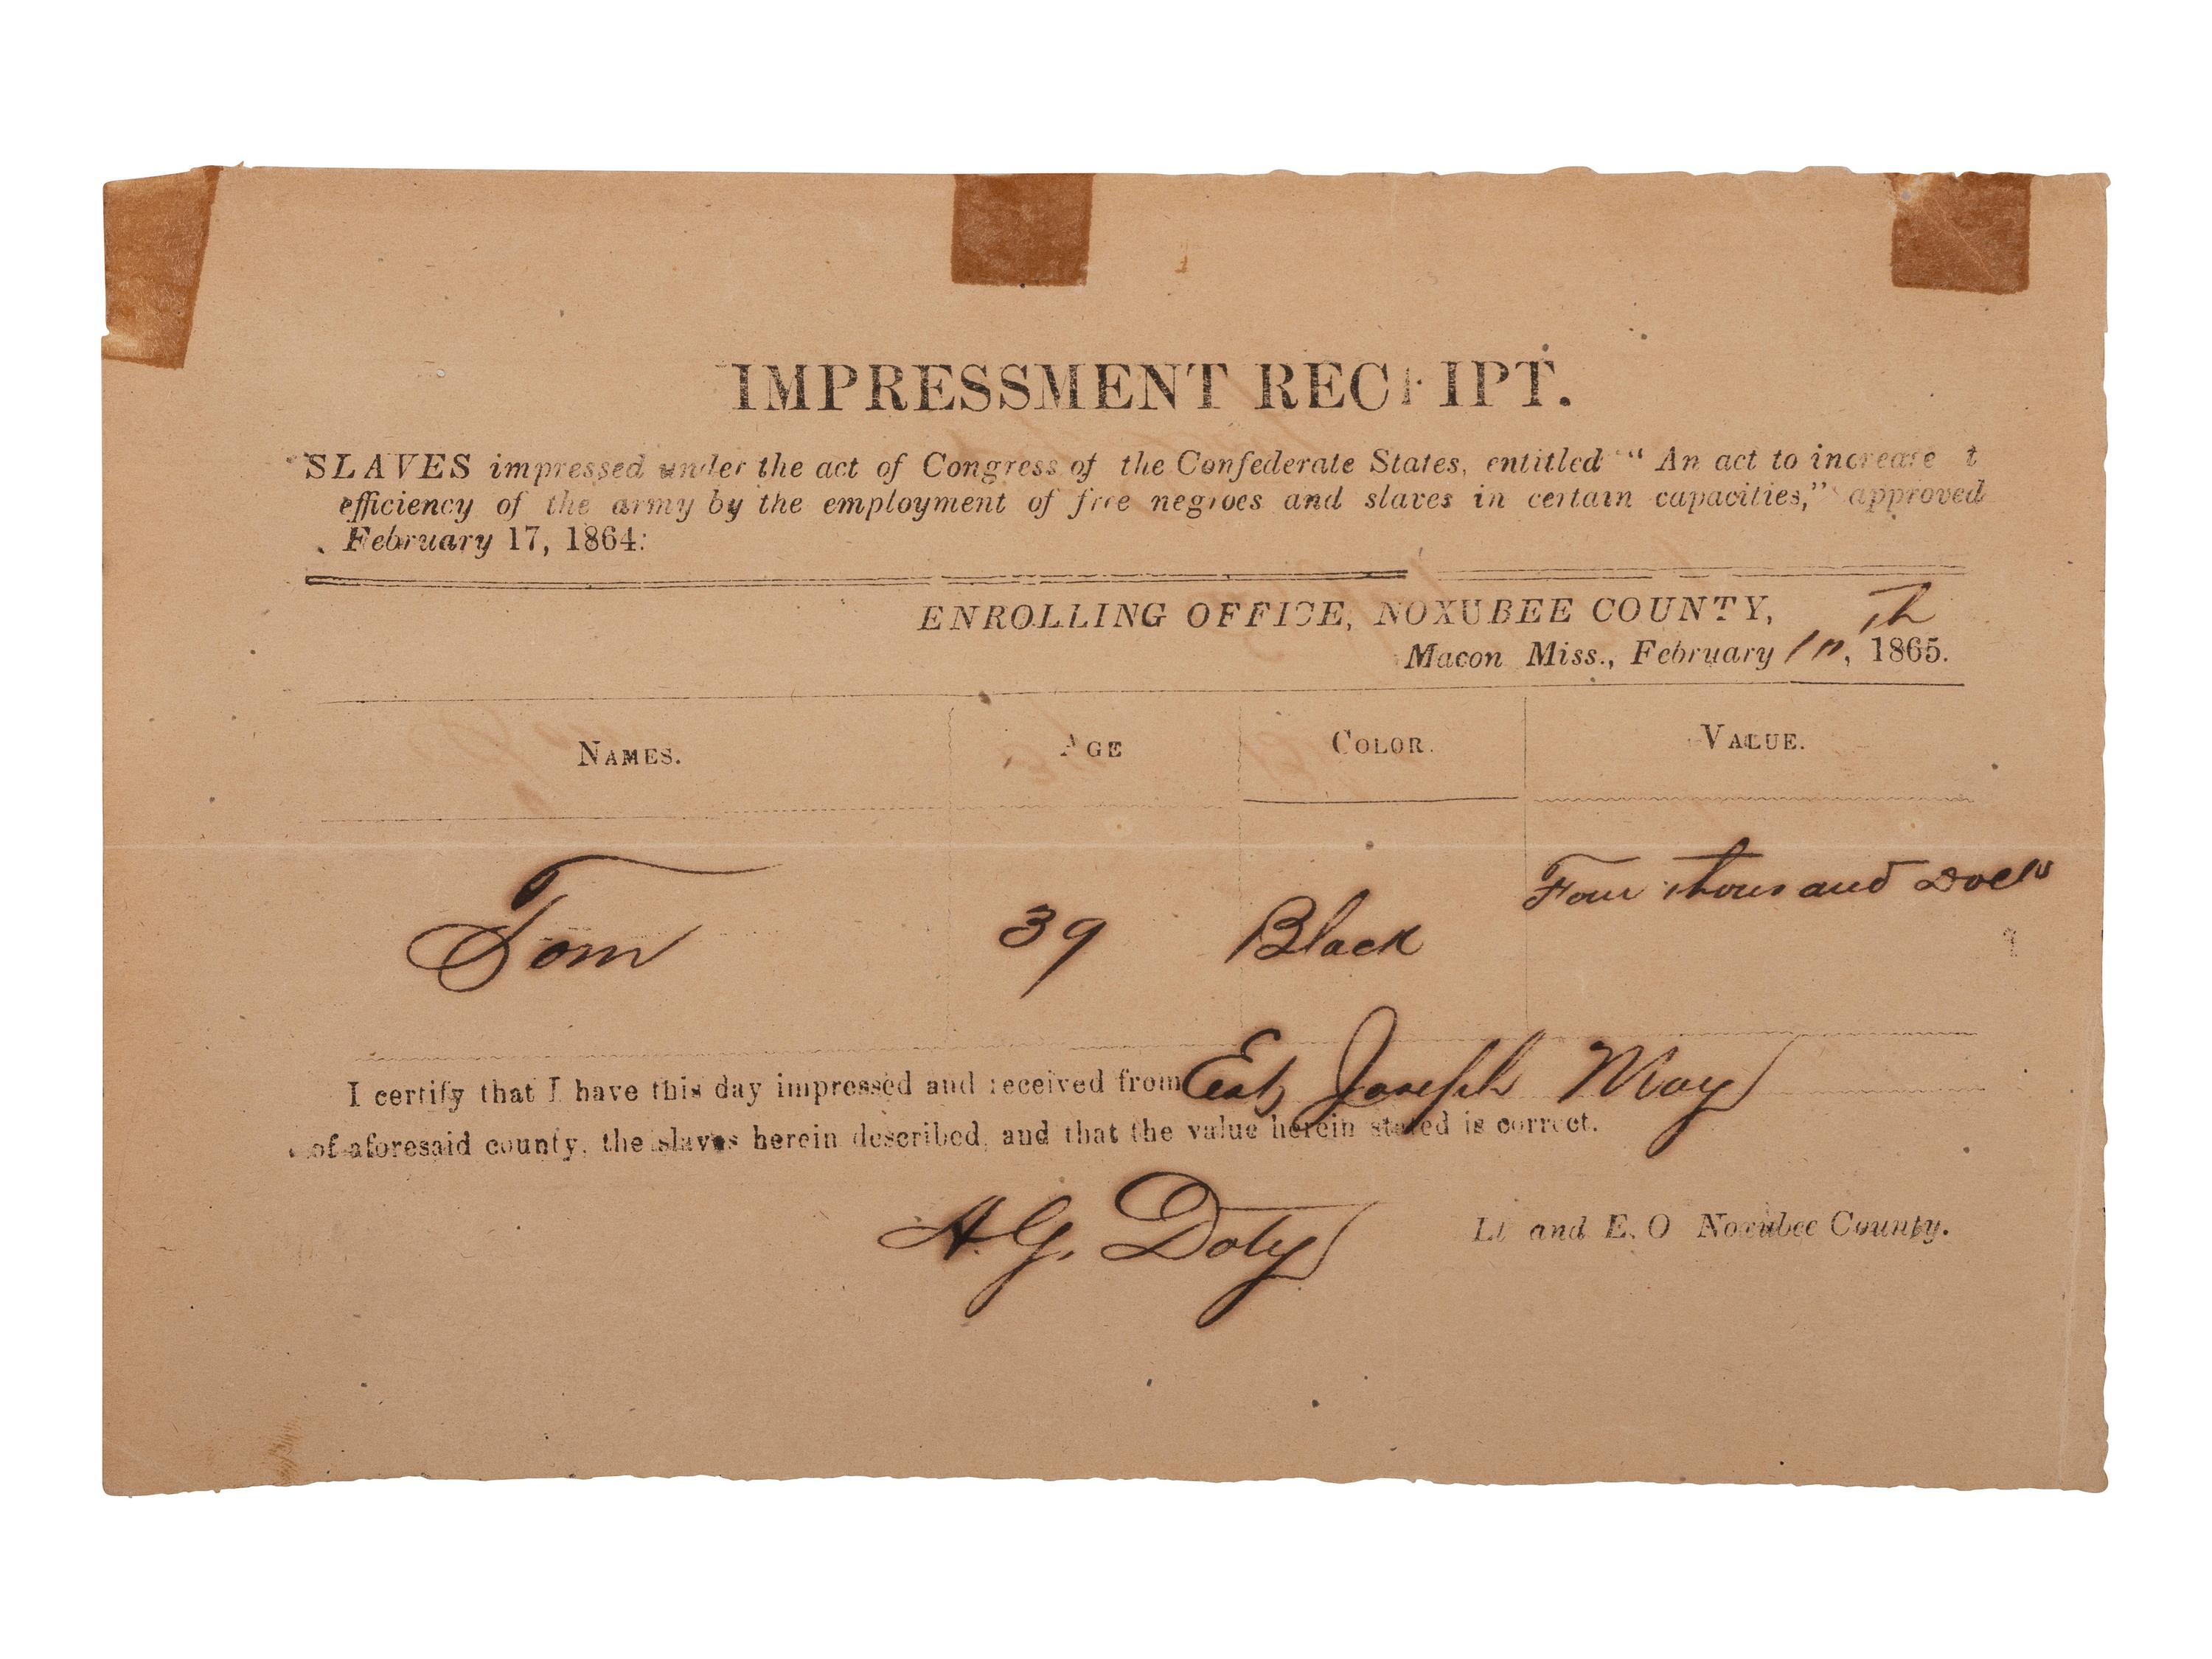 IMPRESSMENT RECEIPT.
SLAVES impressed under the act of Congress of the Confederate States, entitled "An act to increase t
efficiency of the army by the employment of free negroes and slaves in certain capacities," approved
February 17, 1864:
ENROLLING OFFICE, NOXUBEE COUNTY,
Macon Miss., February 10th, 1865.
NAMES. AGE COLOR. VALUE.
Tom 39 Black Four thousand Dolls
I certify that I have this day impressed and received from Est Joseph May
of aforesaid county, the slaves herein described, and that the value herein stated is correct.
A. G. Doty Lt and E. O Noxubee County.